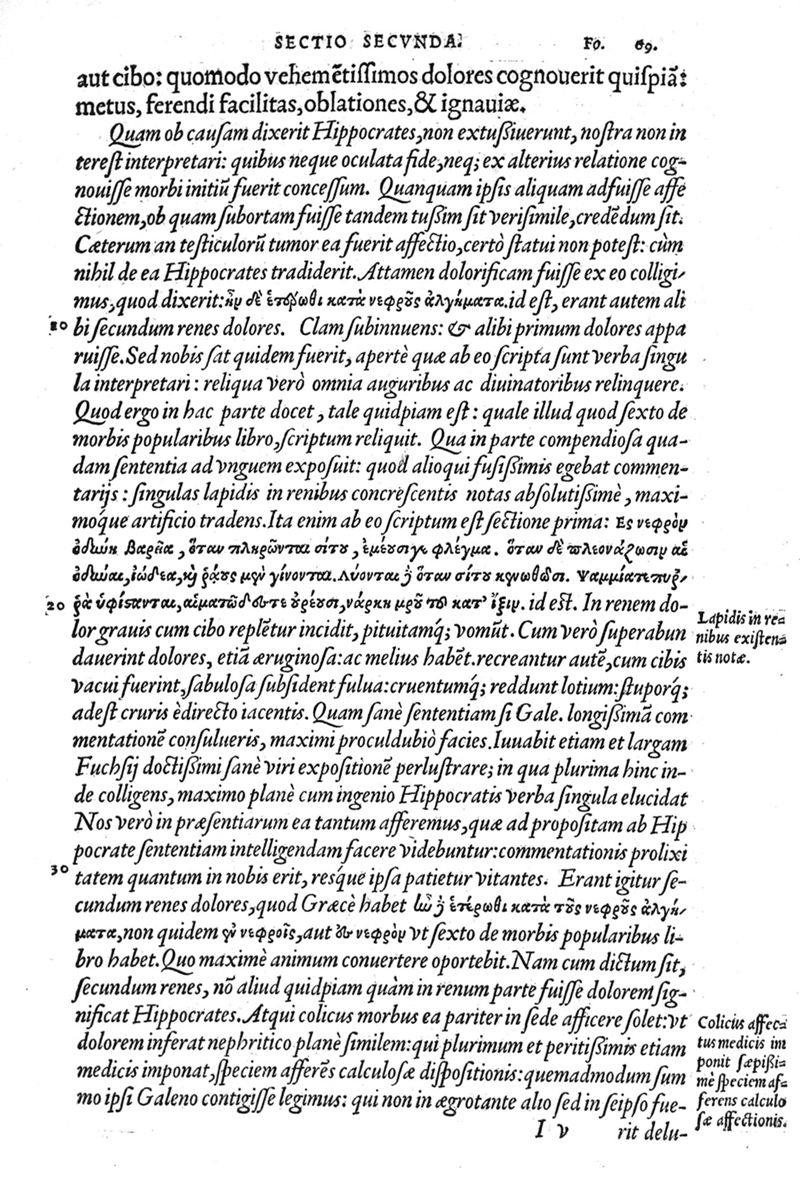 SECTIO SECVNDA. Fo. 69.
aut cibo: quomodo vehemẽtissimos dolores cognouerit quispiã:
metus, ferendi facilitas, oblationes, & ignauiæ.
Quam ob causam dixerit Hippocrates, non extußiuerunt, nostra non in
terest interpretari: quibus neque oculata fide, neq; ex alterius relatione cog-
nouisse morbi initiũ fuerit concessum. Quanquam ipsis aliquam adfuisse affe
ctionem, ob quam subortam fuisse tandem tußim sit verisimile, credẽdum sit.
Cæterum an testiculorũ tumor ea fuerit affectio, certò statui non potest: cùm
nihil de ea Hippocrates tradiderit. Attamen dolorificam fuisse ex eo colligi-
mus, quod dixerit: ἦν δὲ ἑτέρωθι κατὰ νεφροὺς ἀλγήματα. id est, erant autem ali
10 bi secundum renes dolores. Clam subinnuens: & alibi primum dolores appa
ruisse. Sed nobis sat quidem fuerit, apertè quæ ab eo scripta sunt verba singu
la interpretari: reliqua verò omnia auguribus ac diuinatoribus relinquere.
Quod ergo in hac parte docet, tale quidpiam est: quale illud quod sexto de
morbis popularibus libro, scriptum reliquit. Qua in parte compendiosa qua-
dam sententia ad vnguem exposuit: quod alioqui fusißimis egebat commen-
tarijs: singulas lapidis in renibus concrescentis notas absolutissimè, maxi-
moq́ue artificio tradens. Ita enim ab eo scriptum est sectione prima: Ες νεφρὸν
ὀδύνη βαρεῖα, ὅταν πληρῶνται σίτου, ἐμέουσί γε φλέγμα. ὅταν δὲ πλεονάζωσιν αἱ
ὀδύναι, ἰώδεα, καὶ ῥᾴους μὲν γίνονται. Λύονται δὲ ὅταν σίτου κενωθῶσι. Ψαμμία τε πυῤ-
20 ῥὰ ὑφίστανται, αἱματῶδές τε οὐρέουσι, νάρκη μηροῦ τοῦ κατ' ἴξιν. id est. In renem do-
lor grauis cum cibo replẽtur incidit, pituitamq́; vomũt. Cum verò superabun
dauerint dolores, etiã æruginosa: ac melius habẽt. recreantur autẽ, cum cibis
vacui fuerint, sabulosa subsident fulua: cruentumq́; reddunt lotium: stuporq́;
adest cruris èdirecto iacentis. Quam sanè sententiam si Gale. longißimã com
mentationẽ consulueris, maximi proculdubiò facies. Iuuabit etiam et largam
Fuchsij doctißimi sanè viri expositionẽ perlustrare; in qua plurima hinc in-
de colligens, maximo planè cum ingenio Hippocratis verba singula elucidat
Nos verò in præsentiarum ea tantum afferemus, quæ ad propositam ab Hip
pocrate sententiam intelligendam facere videbuntur: commentationis prolixi
30 tatem quantum in nobis erit, resq́ue ipsa patietur vitantes. Erant igitur se-
cundum renes dolores, quod Græcè habet ἦν δὲ ἑτέρωθι κατὰ τοὺς νεφροὺς ἀλγή-
ματα, non quidem ἐν νεφροῖς, aut ἐς νεφρὸν vt sexto de morbis popularibus li-
bro habet. Quo maximè animum conuertere oportebit. Nam cum dictum sit,
secundum renes, nõ aliud quidpiam quàm in renum parte fuisse dolorem sig-
nificat Hippocrates. Atqui colicus morbus ea pariter in sede afficere solet: vt
dolorem inferat nephritico planè similem: qui plurimum et peritißimis etiam
medicis imponat, speciem afferẽs calculosæ dispositionis: quemadmodum sum
mo ipsi Galeno contigisse legimus: qui non in ægrotante alio sed in seipso fue-
I v rit delu-
Lapidis in re-
nibus existen-
tis notæ.
Colicus affec-
tus medicis im
ponit sæpißi-
mè speciem af-
ferens calculo
sæ affectionis.